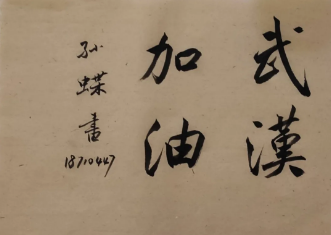 武漢
加油
孙蝶書
18710447